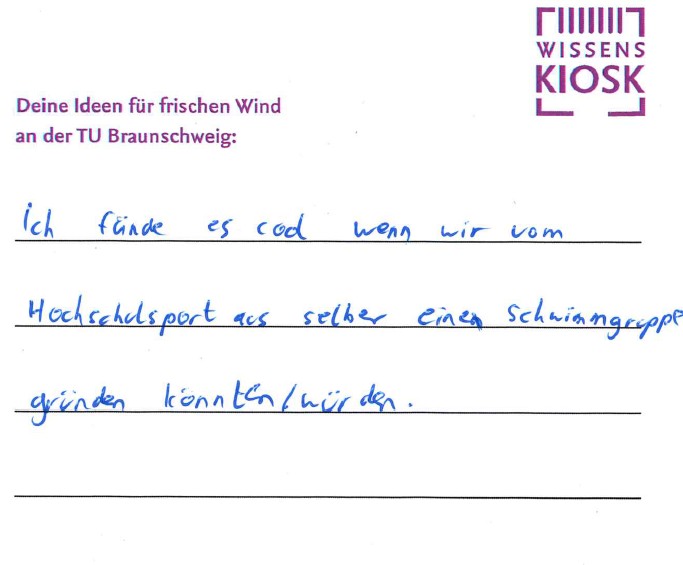 WISSENS
KIOSK
Deine Ideen für frischen Wind
an der TU Braunschweig:
Ich fände es cool wenn wir vom
Hochschulsport aus selber einen Schwimmgruppe
gründen könnten/würden.